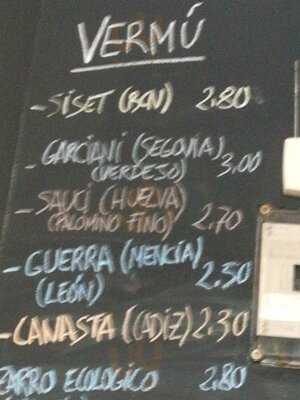 VERMÚ
-SISET (BCN) 2.80
-GARCIANI (SEGOVIA)
(VERDEJO) 3,00
-SAUCI (HUELVA)
(PALOMINO FINO) 2.70
-GUERRA (MENCÍA)
(LEÓN) 2.50
-CANASTA (CADIZ) 2.30
ZARRO ECOLOGICO 2.80